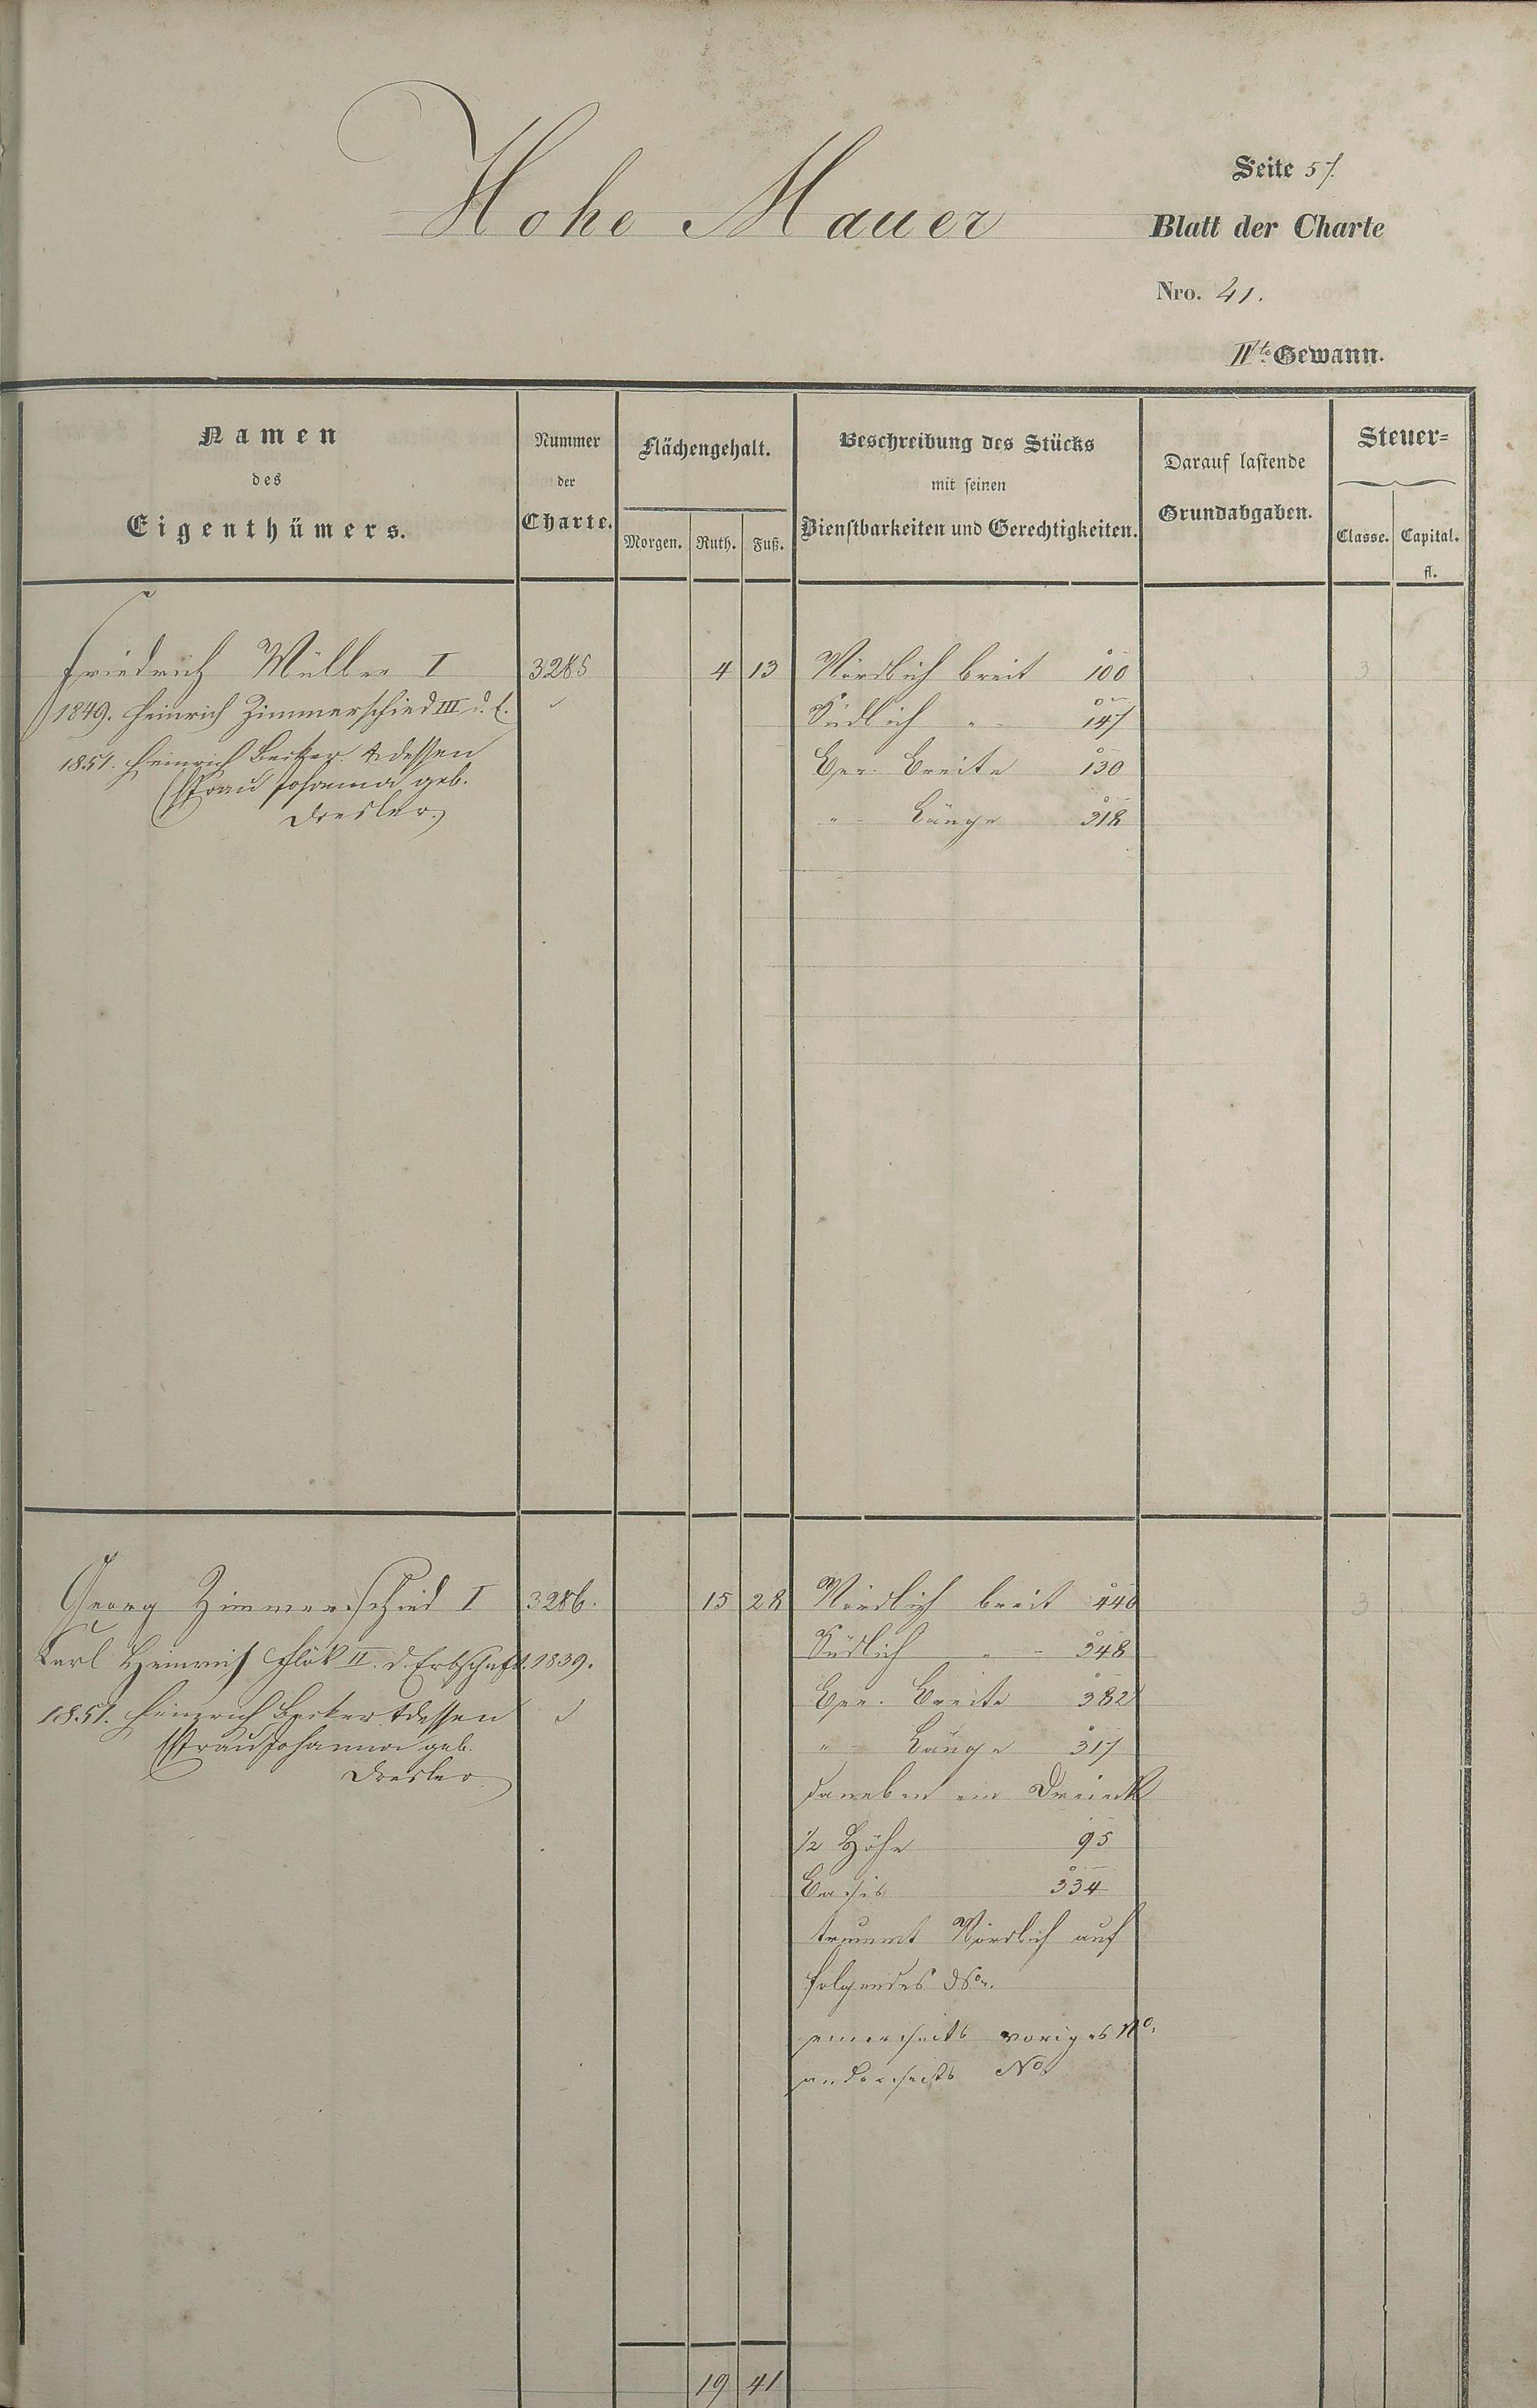 Hohe Mauer
Seite 57.
Blatt der Charte
Nro. 41.
IIte Gewann.
Namen
des
Eigenthümers.
Nummer
der
Charte.
Flächengehalt.
Morgen. Ruth. Fuß.
Beschreibung des Stücks
mit seinen
Dienstbarkeiten und Gerechtigkeiten.
Darauf lastende
Grundabgaben.
Steuer=
Classe. Capital.
fl.
Friedrich Müller I 3285 4 13 Nördlich breit 100 3
1849. Heinrich Zimmerschied III Südlich " 147
1851. Heinrich Becker & dessen Ger. Breite 130
Frau Johanna geb.
Dresler. " Länge 318
Georg Zimmerschied I 3286. 15 28 Nördlich breit 440 3
Karl Heinrich Flöck II. d. Erbschaft. 1839. Südlich " 348
1851. Heinrich Becker & dessen Ger. Breite 382
Frau Johanna geb. " Länge 317
Dresler
daneben ein Dreieck
1/2 Höhe 95
Basis 334
Nördlich auf
folgendes No.
einerseits voriges No.
anderseits No.
19 41